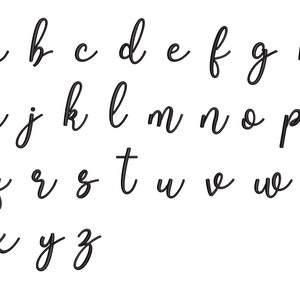 b c d e f g
j k l m n o p
r s t u v w
y z